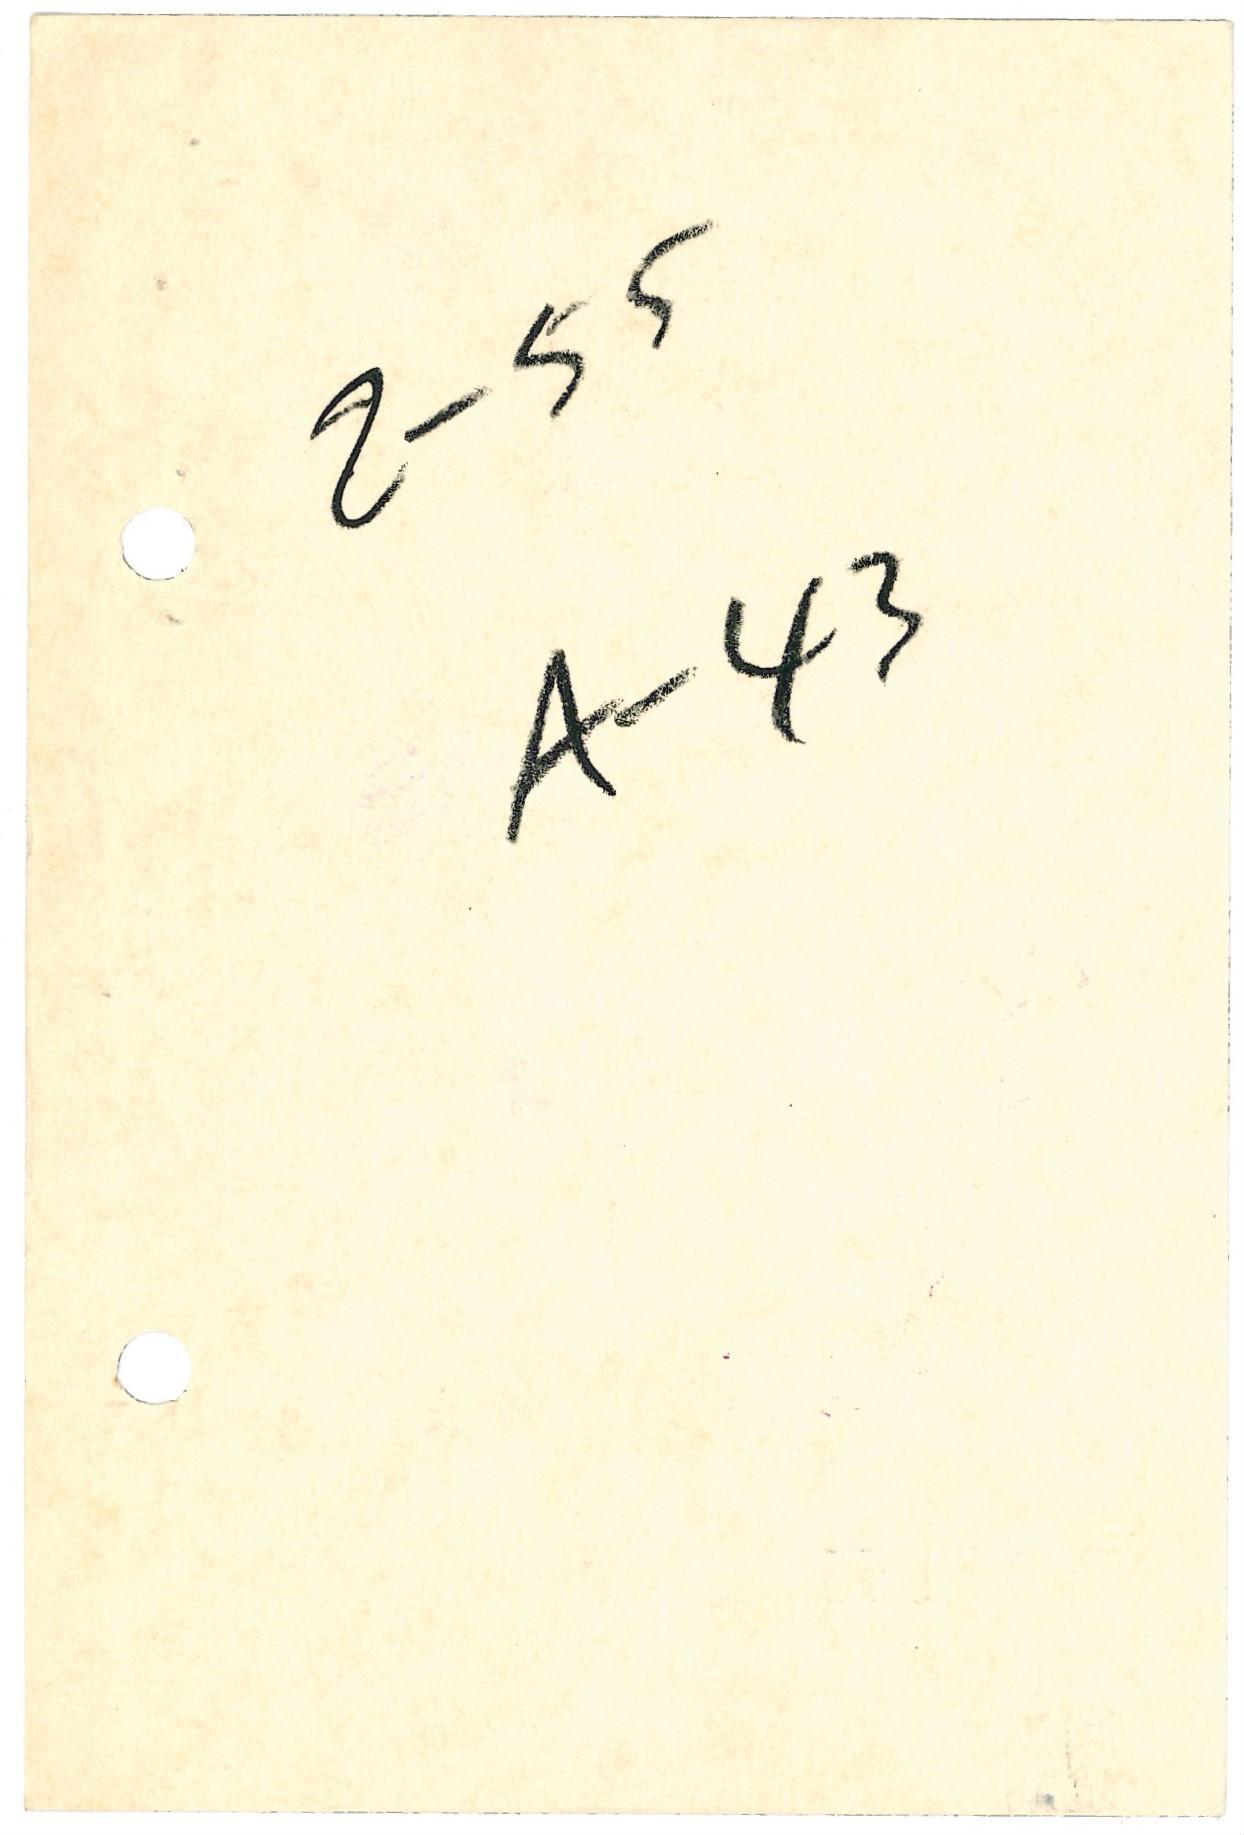 2-55
A-43